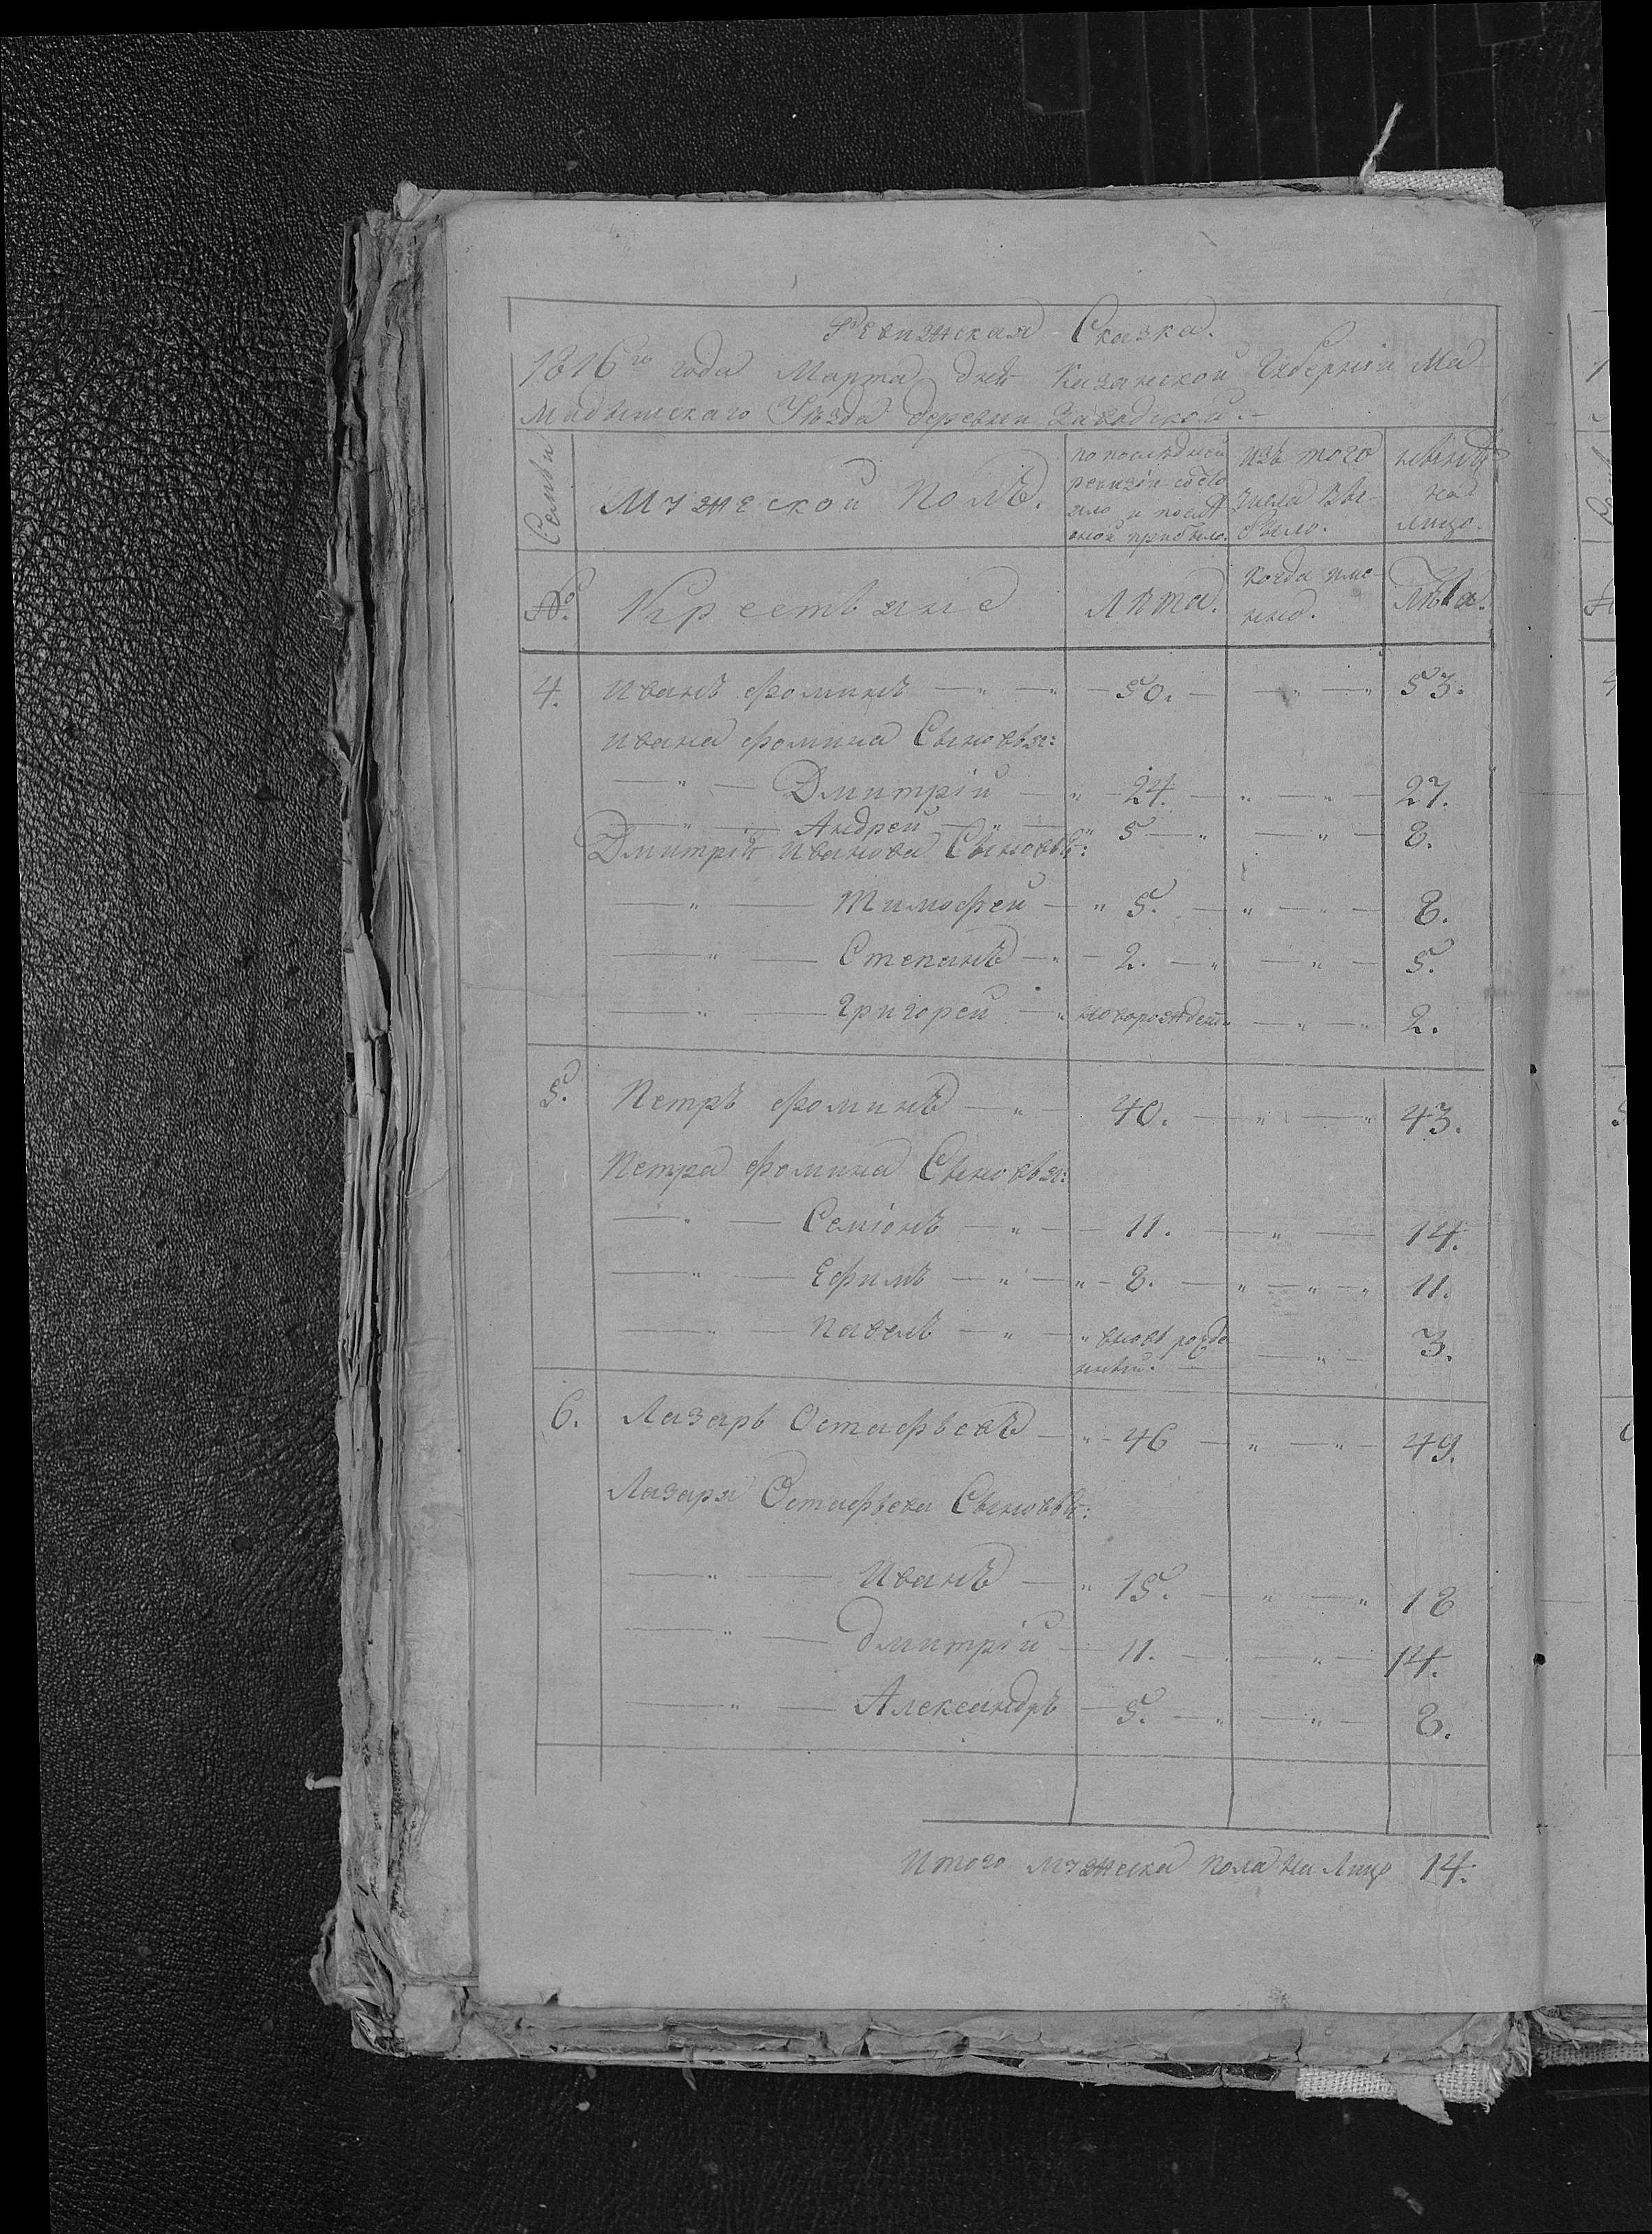 Ревижская Сказка.
1816го года Марта дня Казанской Губерніи Ма-
мадышскаго Уезда деревни Заводской.-
Семьи
Мужеской полъ.
по последней
ревизіи состо
яло и после
оной прибыло.
изъ того
числа вы-
было.
ныне
на
лицо.
№.
Крестьяне
Лета.
когда име-
нно.
Лета.
4. Иванъ Фоминъ — „ — „ — 50. — — „ — „ 53.
Ивана Фомина Сыновья:
— „ — Дмитрій — „ — 24. — „ — „ — 27.
— „ — Андрей — „ — „ 5 — „ — „ — 8.
Дмитрія Иванова Сыновья:
— „ — Тимофей — „ 5. — „ — „ — 8.
— „ — Степанъ — „ — 2. — „ — „ — 5.
— „ — Григорей — „ новорожден — „ — „ 2.
5. Петръ Фоминъ — „ — 40. — „ — „ 43.
Петра Фомина Сыновья:
— „ — Семіонъ — „ — 11. — „ — 14.
— „ — Ефимъ — „ — „ — 8. — „ — „ — „ 11.
— „ — Павелъ — „ — „ вновь рожде
нный. — — „ — 3.
6. Лазарь Остафьевъ — „ — 46 — „ — „ — 49.
Лазаря Остафьева Сыновья:
— „ — Иванъ — „ 15. — „ — „ 18
— „ — Дмитрій — 11. — „ — „ — 14.
— „ — Александръ — 5. — „ — „ — 8.
Итого мужеска пола на Лицо 14.